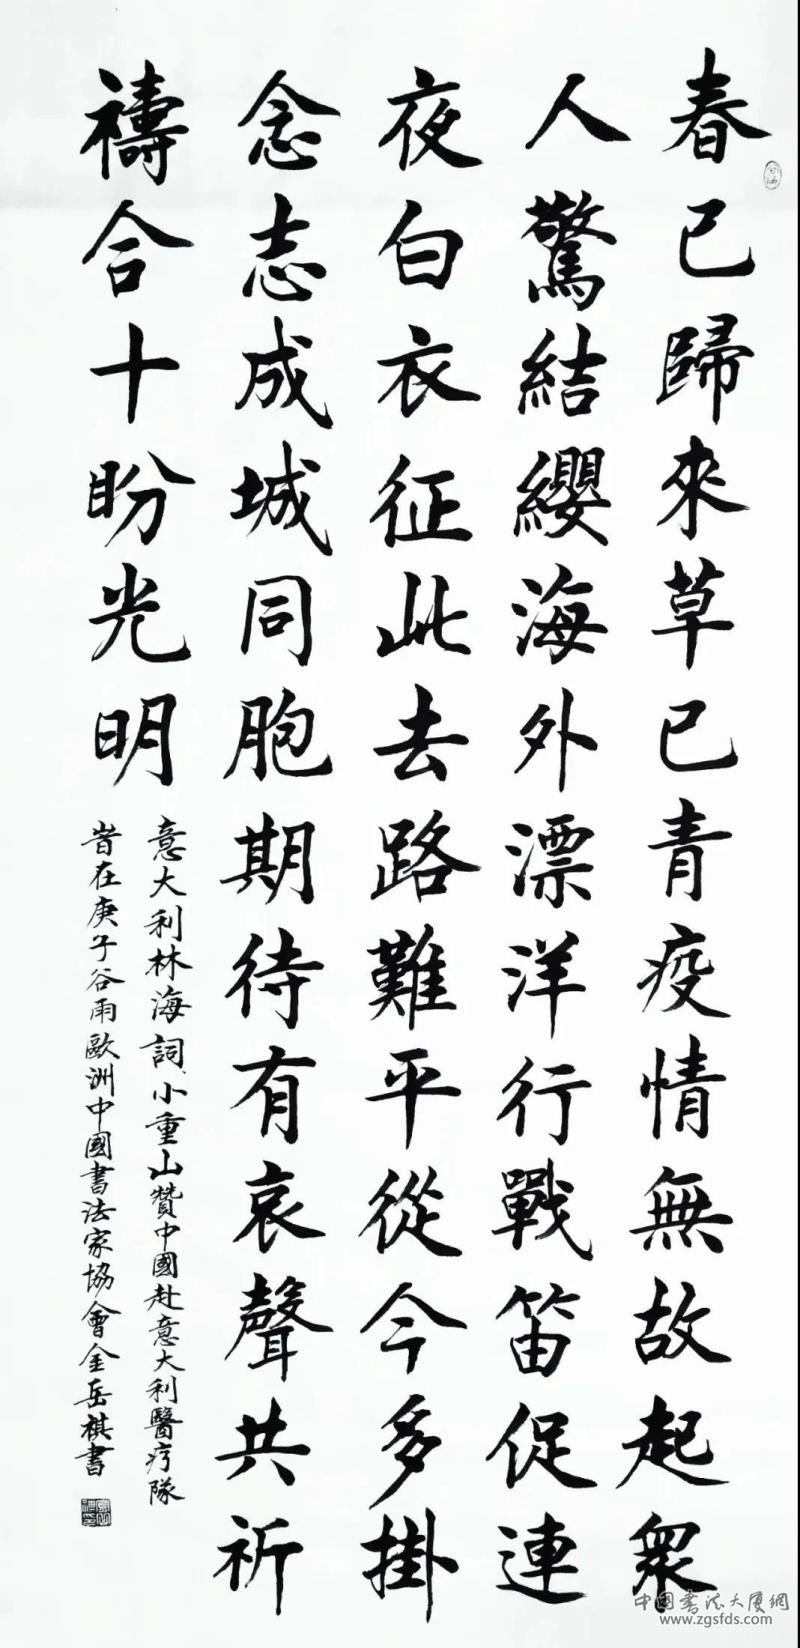 春已歸來草已青疫情無故起眾
人驚結纓海外漂洋行戰笛促連
夜白衣征此去路難平從今多掛
念志成城同胞期待有哀聲共祈
禱合十盼光明
意大利林海詞小重山贊中國赴意大利醫疗隊
昔在庚子谷雨歐洲中國書法家協會金岳祺書
中国書法大厦網
www.zgsfds.com